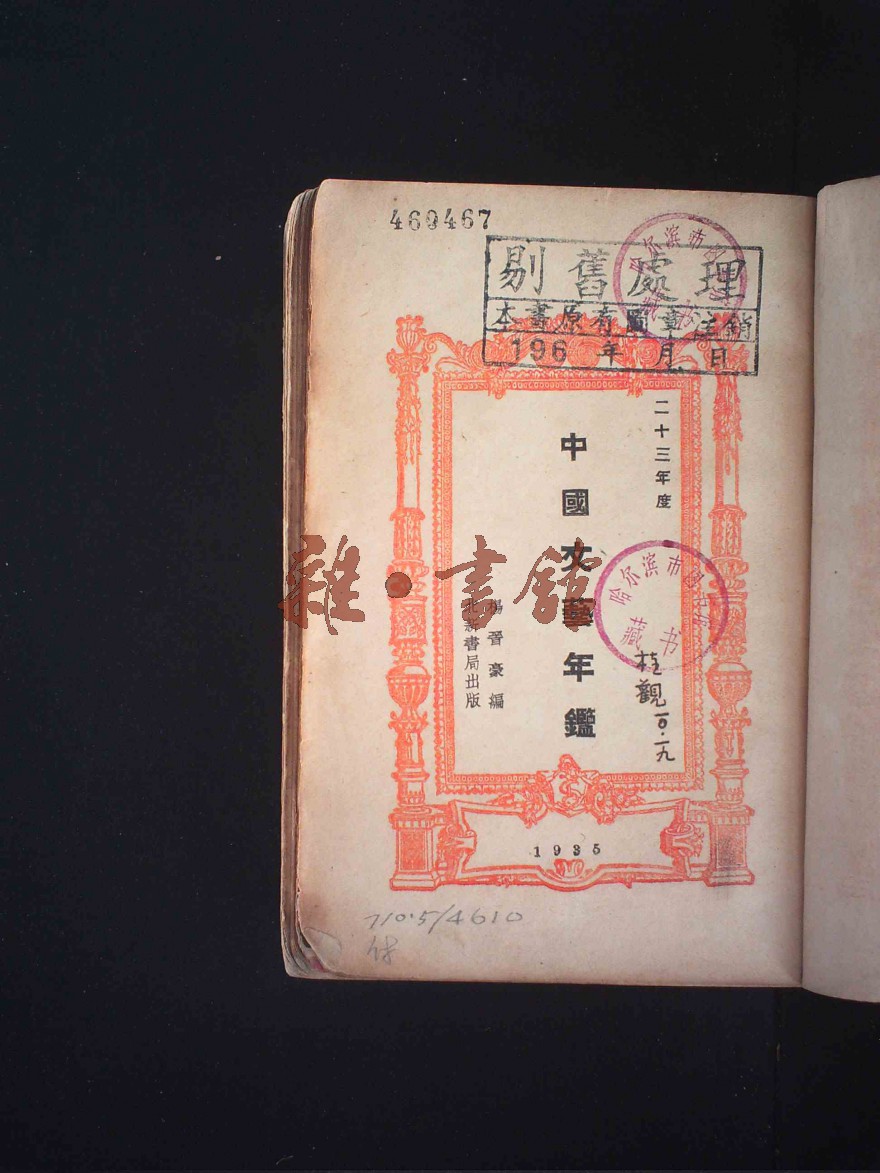 460467
剔舊處理
本書原有圖章注銷
196 年 月 日
哈尔滨市
二十三年度
中國文藝年鑑
楊晉豪編
北新書局出版
哈尔滨市图书馆
藏书
桂觀 一〇·一九
雜·書館
1935
710.5/4610